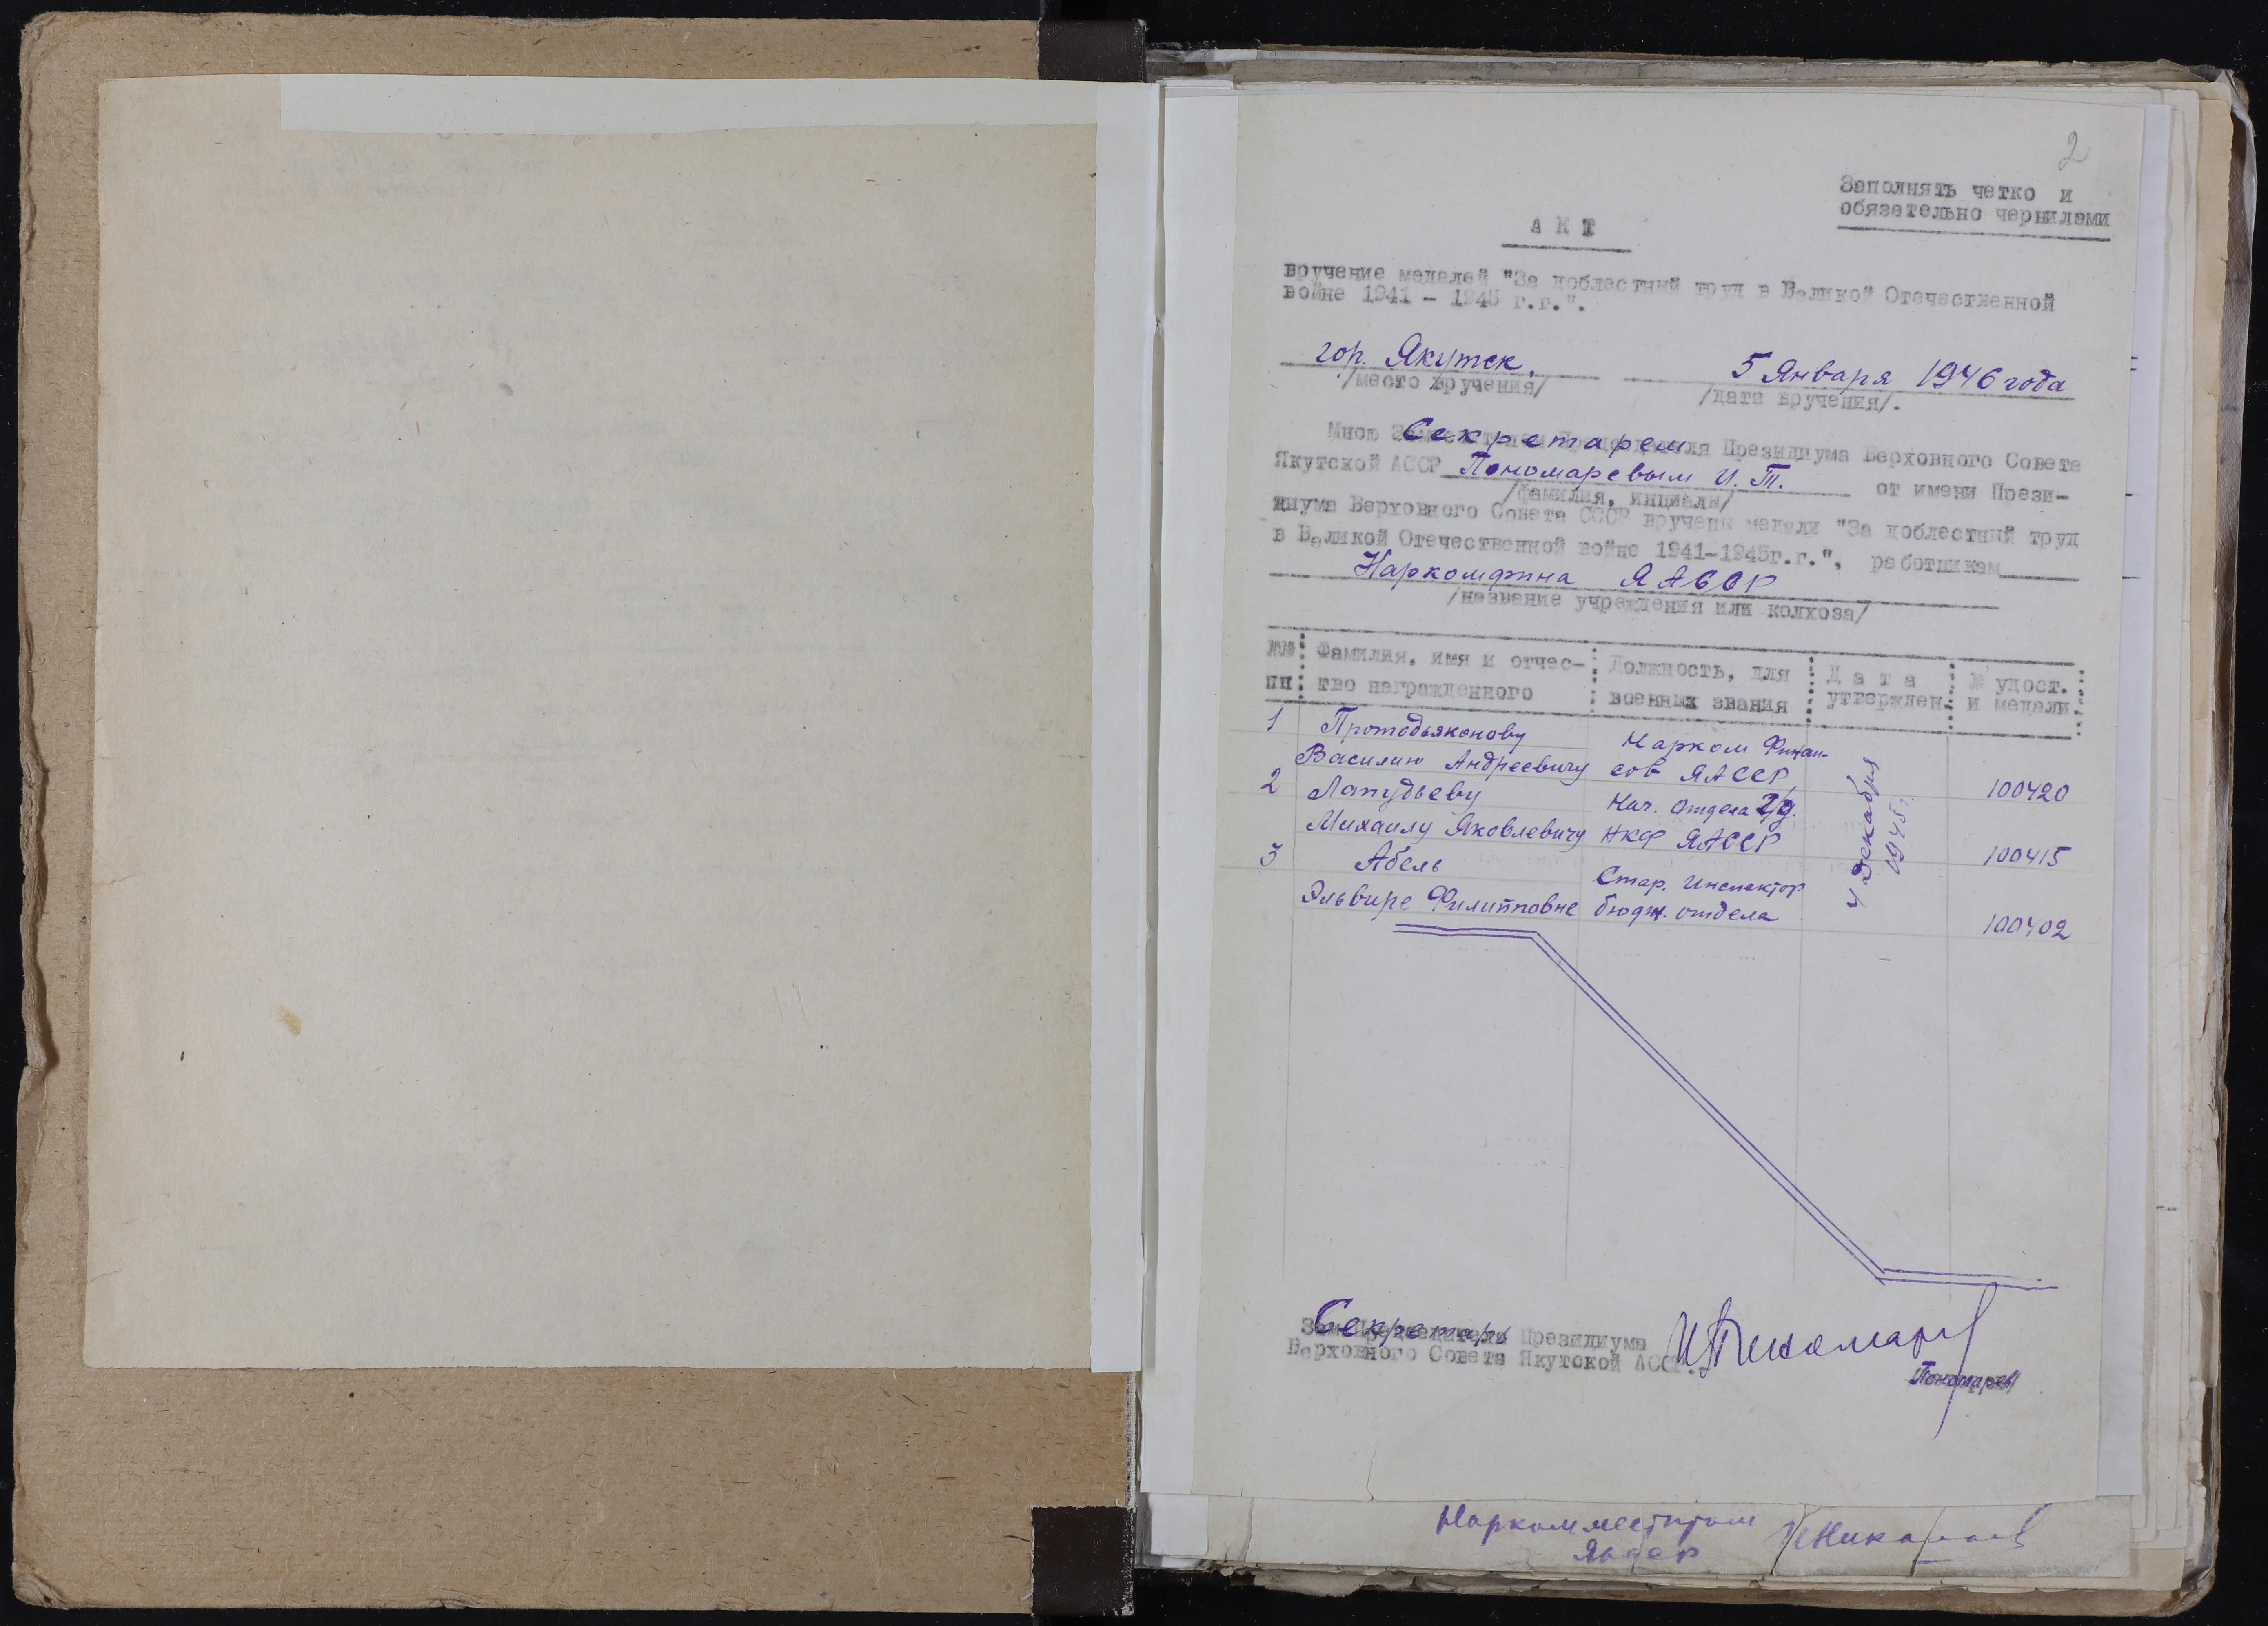 2
Заполнять четко и
обязательно чернилами
АКТ
вручение медалей "За доблестный труд в Великой Отечественной
войне 1941 - 1945 г.г.".
гор. Якутск.
5 Января 1946 года
/место вручения/
/дата вручения/.
Мною Секретарем Президиума Верховного Совета
Якутской АССР Пономаревым И. Т. от имени Прези-
/фамилия, инциалы/
диума Верховного Совета СССР вручены медали "За доблестный труд
в Великой Отечественной войне 1941-1945г.г.", работникам
Наркомфина ЯАССР
/название учреждения или колхоза/
№№ Фамилия, имя и отчес- Должность, для Дата № удост.
пп тво награжденного военных звания утвержден. и медали
1 Протодьяконову Нарком Финан-
Василию Андреевичу сов ЯАССР 100420
2 Лапудьеву Нач. отдела
Михаилу Яковлевичу НКФ ЯАССР 100415
3 Абель Стар. Инспектор
Эльвире Филипповне бюдж. отдела 100402
4 Декабря
1945 г.
Секретарь Президиума
Верховного Совета Якутской АССР.
Пономарев
/Пономарев/
Наркомместпром
ЯАССР